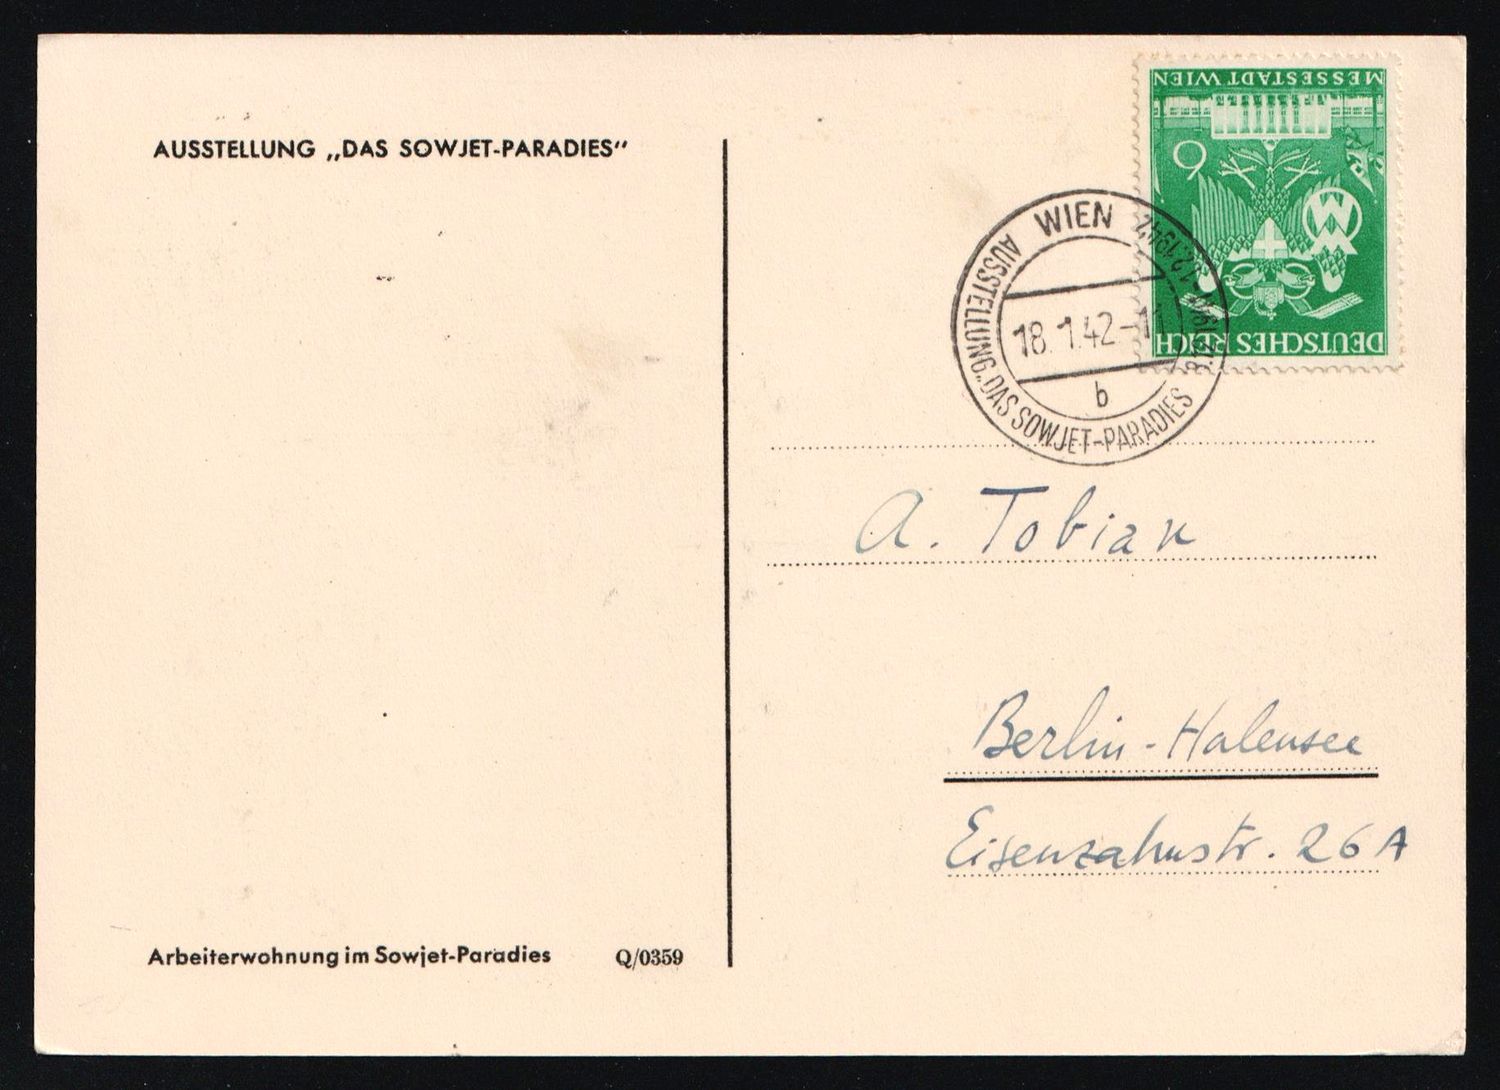 AUSSTELLUNG „DAS SOWJET-PARADIES“
MESSESTADT WIEN
6
WM
DEUTSCHES REICH
WIEN
18.1.42-11
b
AUSSTELLUNG „DAS SOWJET-PARADIES
A. Tobian
Berlin-Halensee
Eisenzahnstr. 26A
Arbeiterwohnung im Sowjet-Paradies Q/0359